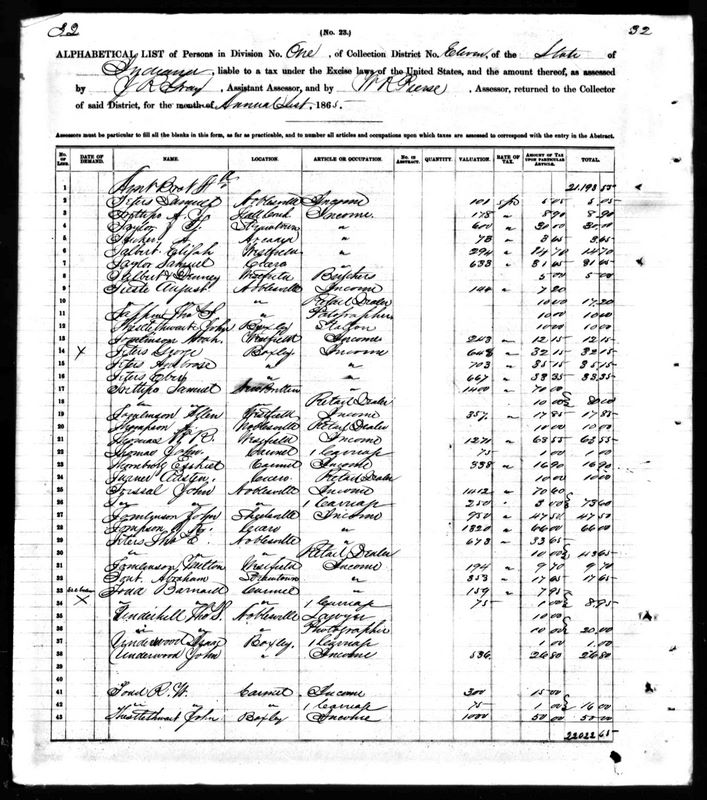 32 (No. 23.) 32
ALPHABETICAL LIST of Persons in Division No. One, of Collection District No. Eleven of the State of
Indiana, liable to a tax under the Excise laws of the United States, and the amount thereof, as assessed
by J R Gray, Assistant Assessor, and by W R Pierse, Assessor, returned to the Collector
of said District, for the month of Annual List, 1865.
Assessors must be particular to fill all the blanks in this form, as far as practicable, and to number all articles and occupations upon which taxes are assessed to correspond with the entry in the Abstract.
No. of Line. DATE OF DEMAND. NAME. LOCATION. ARTICLE OR OCCUPATION. No. in Abstract. QUANTITY. VALUATION. RATE OF TAX. AMOUNT OF TAX UPON PARTICULAR ARTICLE. TOTAL.
1 Amt 21.193 55
2 Samuel Noblesville Income 101 5 05 5.05
3 Income 178 " 8 90 8.90
4 Taylor Strawtown " 600 " 30 00 30.00
5 " 73 " 3 65 3.65
6 Talbert Elijah Westfield " 294 " 14 70 14 70
7 Taylor Samuel Cicero " 633 " 31 65 31 65
8 Westfield Butchers 5 00 5 00
9 August Noblesville Income 144 " 7 20
10 " " Retail Dealer 10 00 17.20
11 " Photographer 10 00 10 00
12 Thistlethwait John Boxley Stallion 10 00 10 00
13 Tomlinson Noah Westfield Income 243 " 12 15 12 15
14 x Boxley Income 643 " 32 15 32 15
15 Ambrose " " 703 " 35 15 35 15
16 " " 667 " 33 35 33.35
17 Samuel New Britton 1400 " 70 00
18 " Retail Dealer 10 00 80 00
19 Tomlinson Allen Westfield Income 357 " 17 85 17 85
20 Thompson Noblesville Retail Dealer 10 00 10 00
21 Thomas Westfield Income 1271 " 63 55 63 55
22 Thomas John Carmel 1 Carriage 75 1 00 1 00
23 Thornburg Ezekiel Carmel Income 338 " 16 90 16 90
24 Turner Cicero Retail Dealer 10 00 10 00
25 John Noblesville Income 1412 " 70 60
26 " " 1 Carriage 250 3 00 73 60
27 Tomlinson John Income 950 " 47 50 47 50
28 Cicero " 1320 " 66 00 66 00
29 Thos E Noblesville " 673 " 33 65
30 " " Retail Dealer 10 00 43 65
31 Tomlinson Milton Westfield Income 194 " 9 70 9 70
32 Abraham Strawtown " 353 " 17 65 17 65
33 Todd Barnard Carmel " 159 " 7 95
34 x " " 1 Carriage 75 1 00 8.95
35 Underhill Thos S. Noblesville Lawyer 10 00
36 " " Photographer 10 00 20.00
37 Underwood Isaac Boxley 1 Carriage 1 00 1.00
38 Underwood John " Income 536 26 80 26 80
41 Todd R. W. Carmel Income 300 15 00
42 " " 1 Carriage 75 1 00 16 00
43 Thistlethwait John Boxley Income 1000 50 00 50 00
22022 65